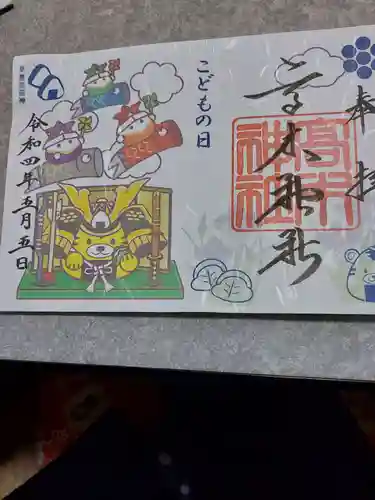 奉拝
高木神社
高木
神社
こどもの日
令和四年五月五日